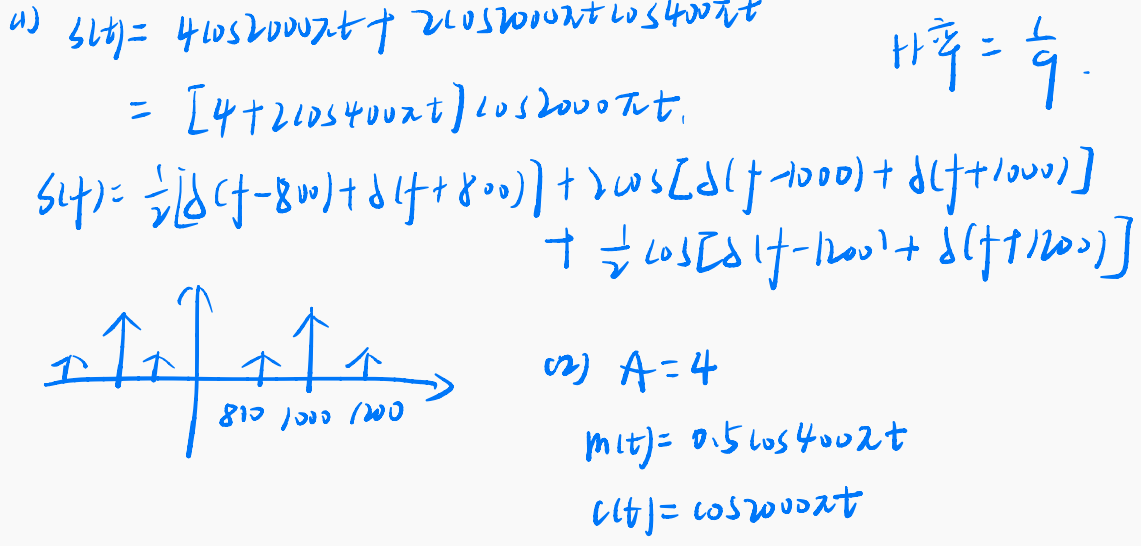 (1) s(t)= 4cos2000πt + 2cos2000πtcos400πt
= [4+2cos400πt]cos2000πt.
功率 = 1/9.
S(f)= 1/2[δ(f-800)+δ(f+800)] + 2cos[δ(f-1000)+δ(f+1000)]
+ 1/2 cos[δ(f-1200)+δ(f+1200)]
800 1000 1200
(2) A=4
m(t)= 0.5cos400πt
c(t)= cos2000πt